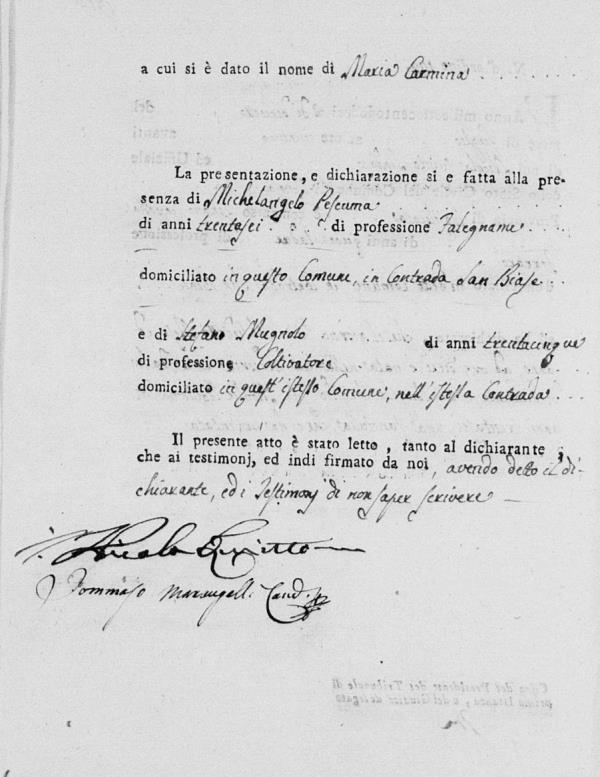 a cui si è dato il nome di Maria Carmina
La presentazione, e dichiarazione si e fatta alla pre-
senza di Michelangelo Pescuma
di anni trentasei di professione Falegname
domiciliato in questo Comune, in Contrada San Biase
e di Stefano Mugnolo di anni trentacinque
di professione Coltivatore
domiciliato in quest'istesso Comune, nell'istessa Contrada
Il presente atto è stato letto, tanto al dichiarante,
che ai testimonj, ed indi firmato da noi, avendo detto il di-
chiarante, ed i Testimonj di non saper scrivere
Nicola
Tommaso
Cifra del Presidente del Tribunale di
prima Istanza, o del Giudice delegato